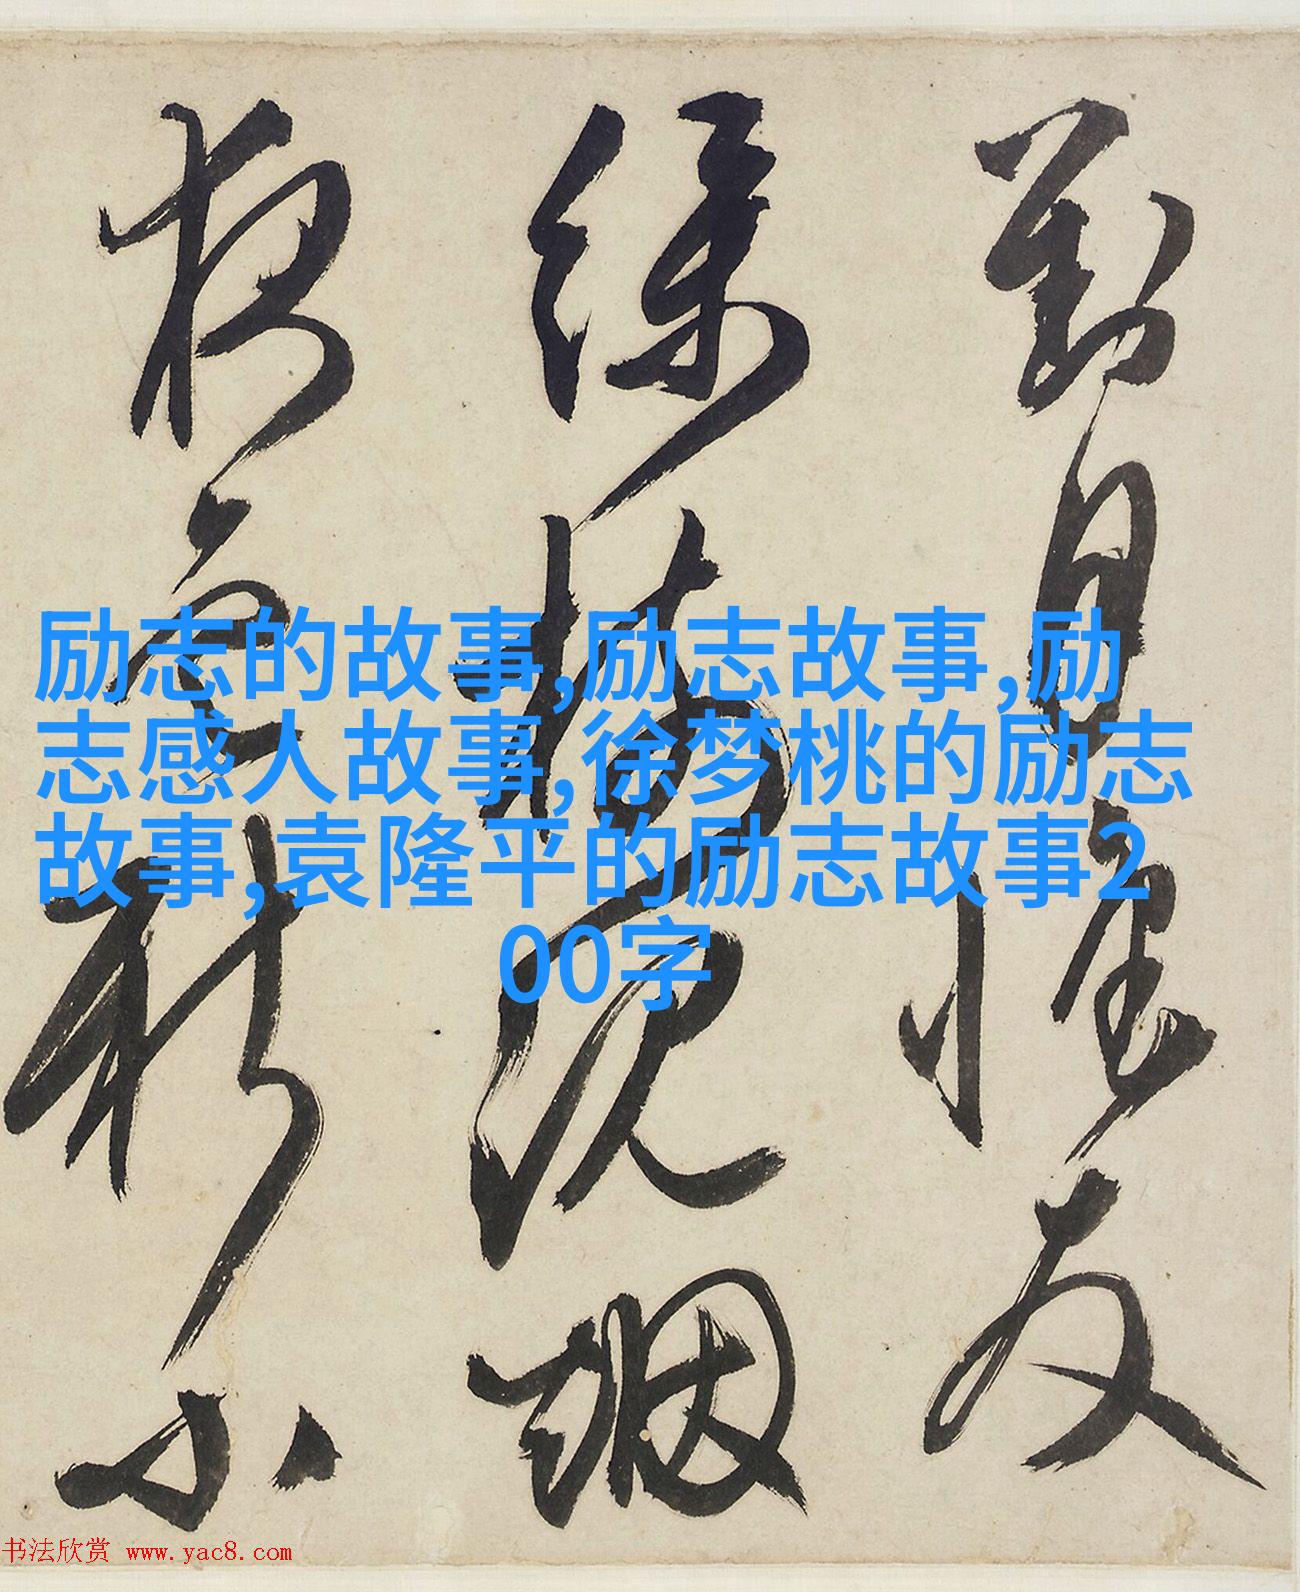 對月惟友
綠樹沉烟
夜色秋小
励志的故事,励志故事,励
志感人故事,徐梦桃的励志
故事,袁隆平的励志故事2
00字
书法欣赏 www.yac8.com